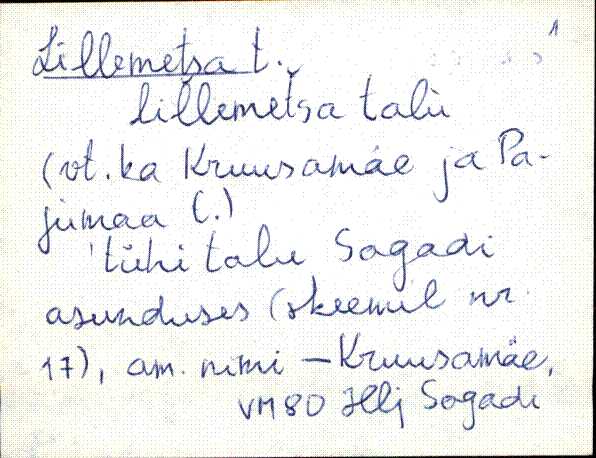 1
Lillemetsa t.
lillemetsa talu
(vt. ka Kruusamäe ja Pa-
jumaa (.)
'tühi talu Sagadi
asunduses (skeemil nr.
17), am. nimi – Kruusamäe,
VM 80 Hlj Sagadi